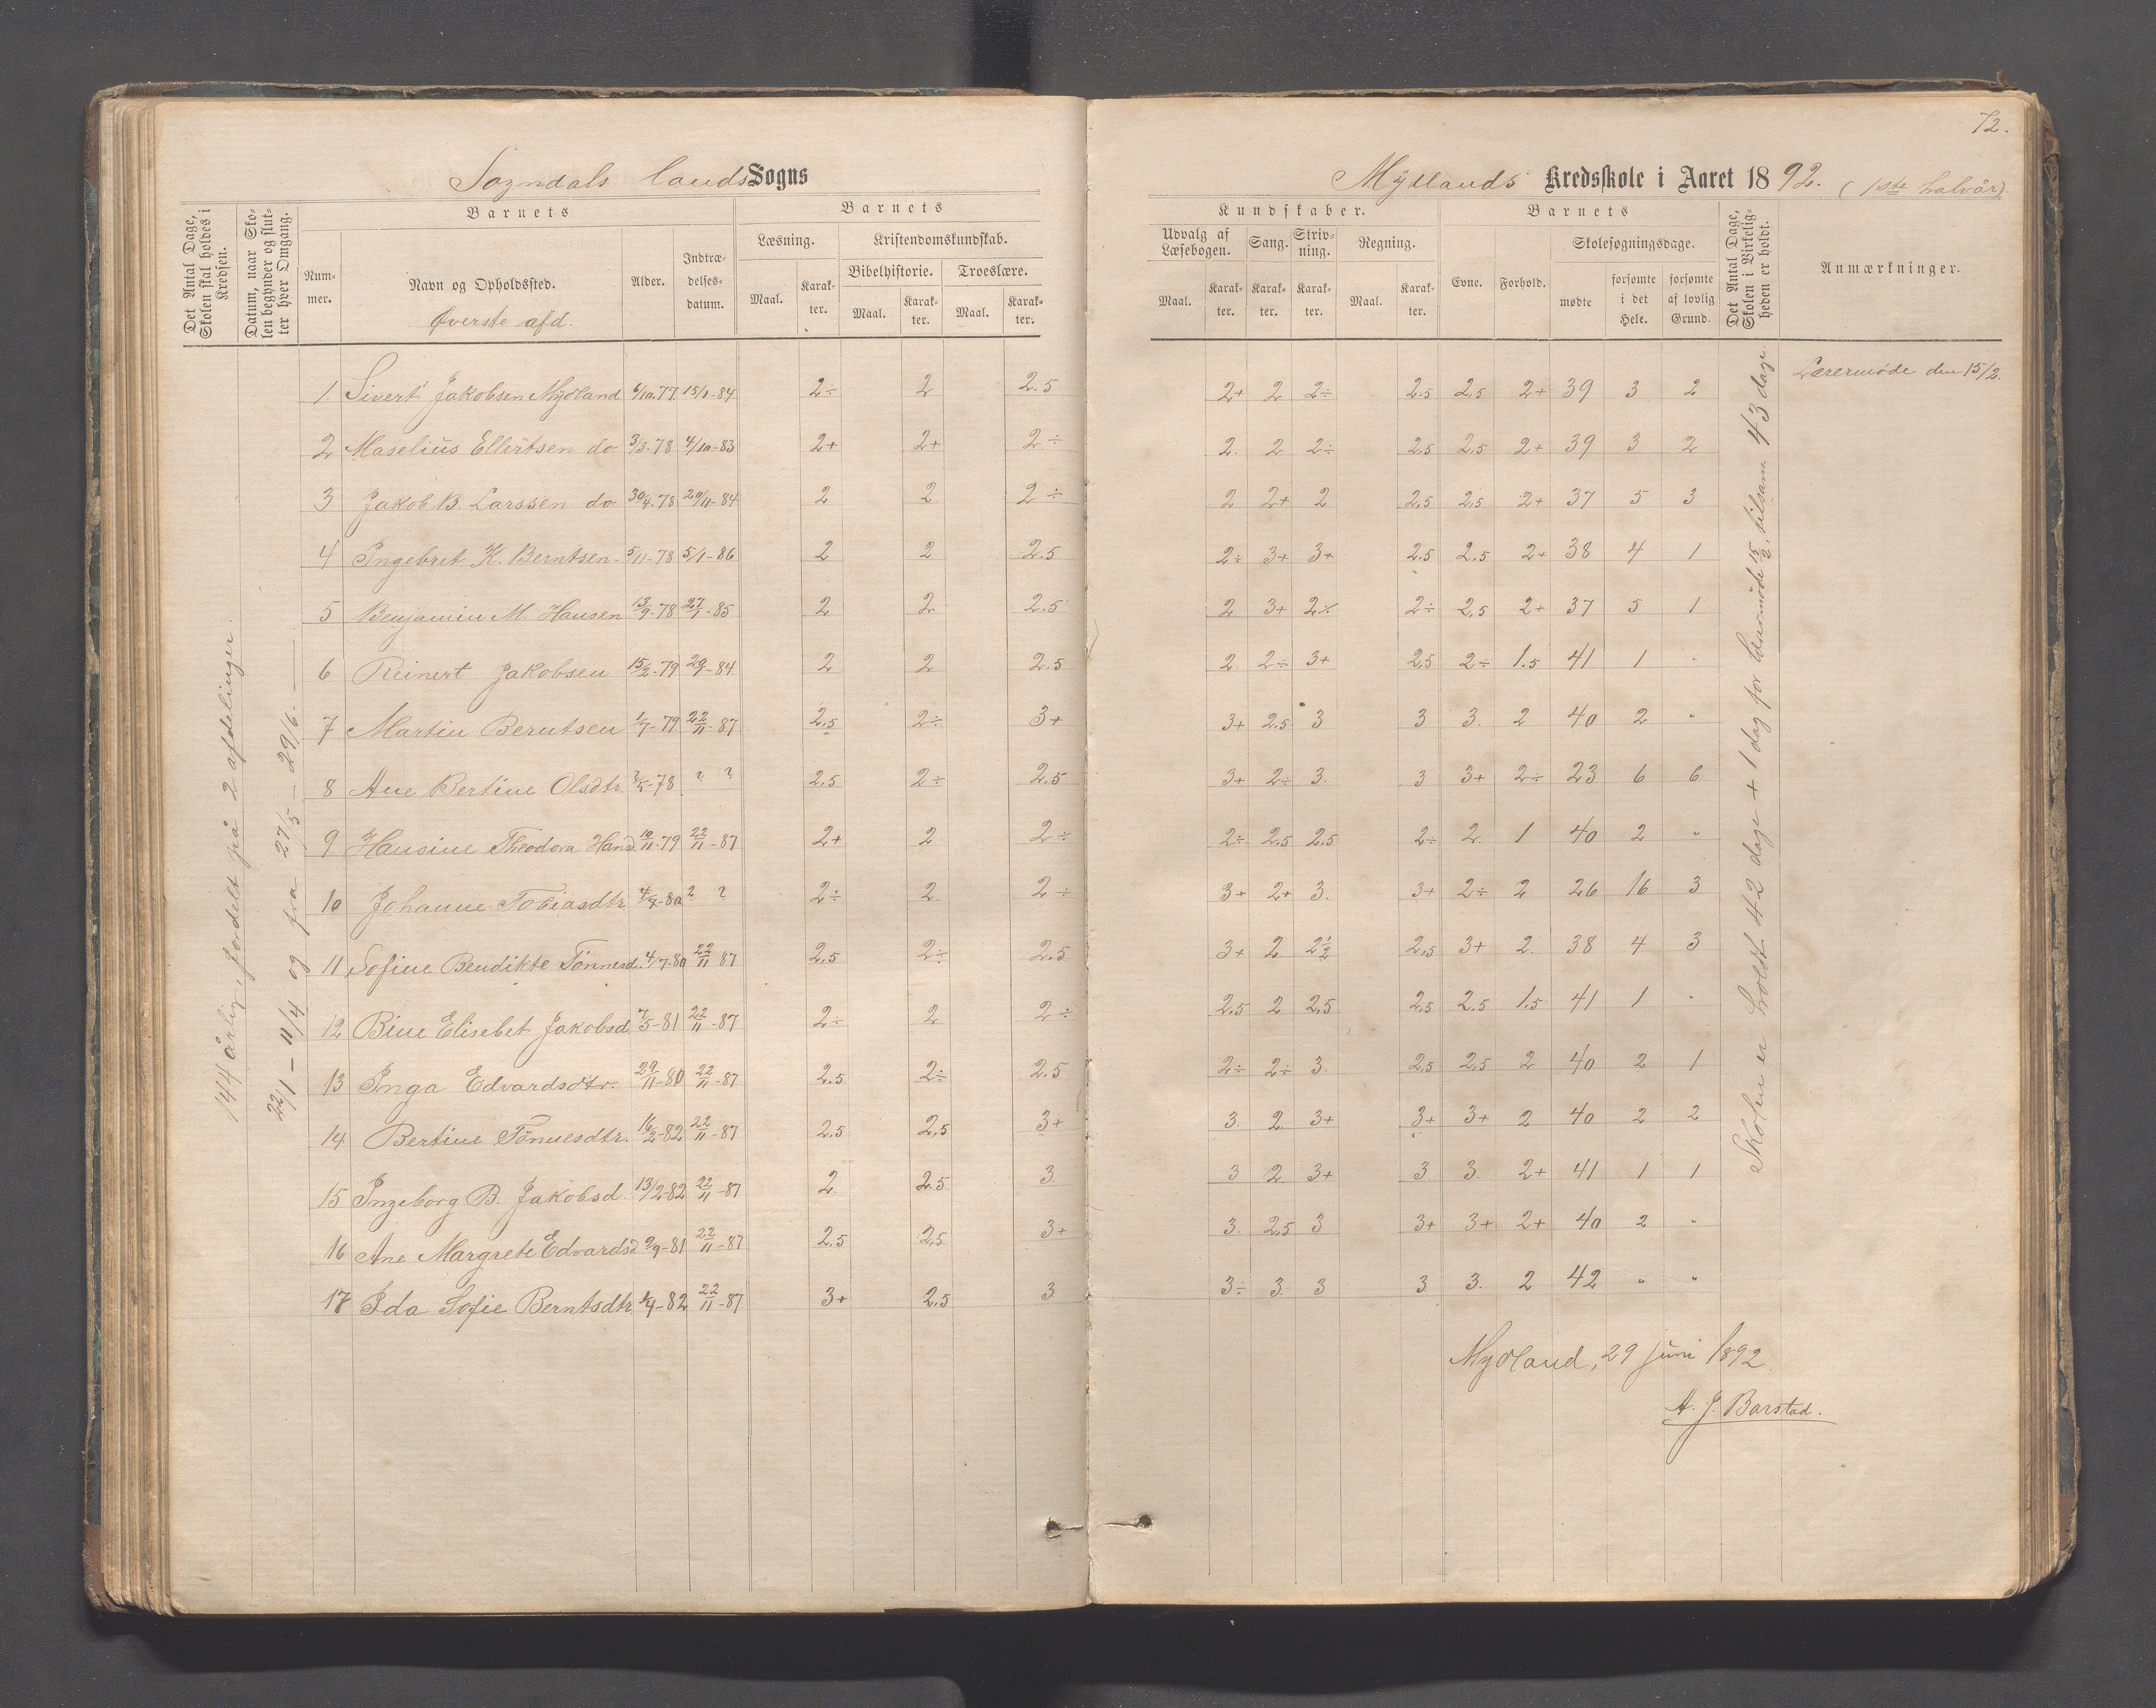 72.
Sogndals lands Sogns
Mydlands Kredsskole i Aaret 1892. (1ste halvår).
Det Antal Dage, Skolen skal holdes i Kredsen.
Datum, naar Skolen begynder og slutter hver Omgang.
Barnets
Nummer.
Navn og Opholdssted.
Øverste afd.
Alder.
Indtrædelses-datum.
Barnets
Læsning.
Maal.
Karakter.
Kristendomskundskab.
Bibelhistorie.
Maal.
Karakter.
Troeslære.
Maal.
Karakter.
Kundskaber.
Udvalg af Læsebogen.
Maal.
Karakter.
Sang.
Karakter.
Skrivning.
Karakter.
Regning.
Maal.
Karakter.
Barnets
Evne.
Forhold.
Skolesøgningsdage.
mødte
forsømte i det Hele.
forsømte af lovlig Grund.
Det Antal Dage, Skolen i Virkeligheden er holdt.
Anmærkninger.
144 årlig, fordelt på 2 afdelinger.
22/1 – 11/4 og fra 27/5 – 29/6.
1. Sivert Jakobsen Mydland 6/10.77 15/1-84 2÷ 2 2.5 2+ 2 2÷ 2.5 2.5 2+ 39 3 2 Lærermøde den 15/2.
2 Maselius Ellertsen do 3/3.78 4/10-83 2+ 2+ 2÷ 2. 2 2÷ 2.5 2.5 2+ 39 3 2
3 Jakob B. Larssen do 30/4.78 29/11-84 2 2 2÷ 2 2+ 2 2.5 2.5 2+ 37 5 3
4 Ingebret K. Berntsen 5/11-78 5/1-86 2 2 2.5 2÷ 3+ 3+ 2.5 2.5 2+ 38 4 1
5 Benjamin M. Hansen 13/9-78 27/1-85 2 2 2.5 2 3+ 2÷ 2÷ 2.5 2+ 37 5 1
6 Reinert Jakobsen 15/2-79 29/9-84 2 2 2.5 2. 2÷ 3+ 2.5 2÷ 1.5 41 1 "
7 Martin Berntsen 1/7-79 22/11-87 2.5 2÷ 3+ 3+ 2.5 3 3 3. 2 40 2 "
8 Ane Bertine Olsdtr. ?/5-78 ? ? 2.5 2÷ 2.5 3+ 2÷ 3. 3 3+ 2÷ 23 6 6
9 Hansine Theodora Hansd. 10/11-79 22/11-87 2+ 2 2÷ 2÷ 2.5 2.5 2÷ 2. 1 40 2 "
10 Johanne Tobiasdtr. 4/4-80 ? ? 2÷ 2. 2÷ 3+ 2+ 3. 3+ 2÷ 2 26 16 3
11 Sofine Bendikte Tønnesd. 4/7-80 22/11 87 2.5 2÷ 2.5 3+ 2. 2½ 2.5 3+ 2. 38 4 3
12 Bine Elisebet Jakobsd. 7/5-81 22/11-87 2÷ 2 2÷ 2.5 2 2.5 2.5 2.5 1.5 41 1 "
13 Inga Edvardsdtr. 29/11-80 22/11-87 2.5 2÷ 2.5 2÷ 2÷ 3. 2.5 2.5 2 40 2 1
14 Bertine Tønnesdtr. 16/2-82 22/11-87 2.5 2.5 3+ 3. 2. 3+ 3+ 3+ 2 40 2 2
15 Ingeborg B. Jakobsd. 13/2-82 22/11-87 2. 2.5 3. 3 2. 3+ 3. 3. 2+ 41 1 1
16 Ane Margrete Edvardsd. 9/9-81 22/11-87 2.5 2.5 3+ 3. 2.5 3 3+ 3+ 2+ 40 2 "
17 Ida Sofie Berntsdtr. 1/9-82 22/11-87 3+ 2.5 3 3÷ 3. 3 3. 3. 2 42 " "
Skolen er holdt 42 dage + 1 dag for lærermøde 15/2, tilsam. 43 dage.
Mydland, 29 juni 1892.
A. J. Barstad.